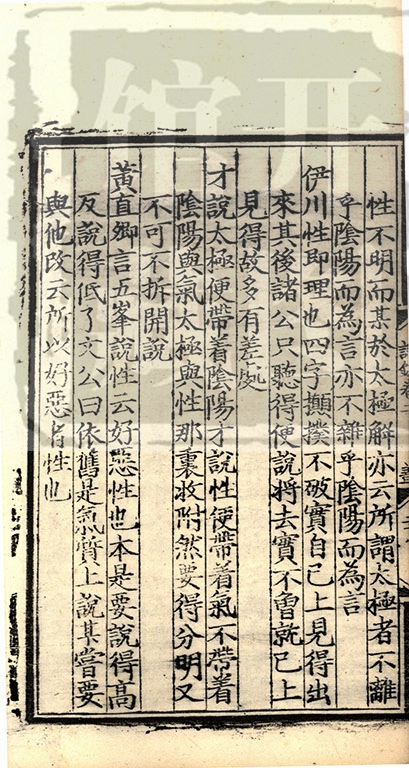 性不明而某於太極解亦云所謂太極者不離
乎陰陽而為言亦不雜乎陰陽而為言
伊川性即理也四字攧撲不破實自己上見得出
來其後諸公只聽得便說將去實不曾就己上
見得故多有差處
才說太極便帶着陰陽才說性便帶着氣不帶着
陰陽與氣太極與性那裏收附然要得分明又
不可不拆開說
黃直卿言五峯說性云好惡性也本是要說得高
反說得低了文公曰依舊是氣質上說某嘗要
與他改云所以好惡者性也